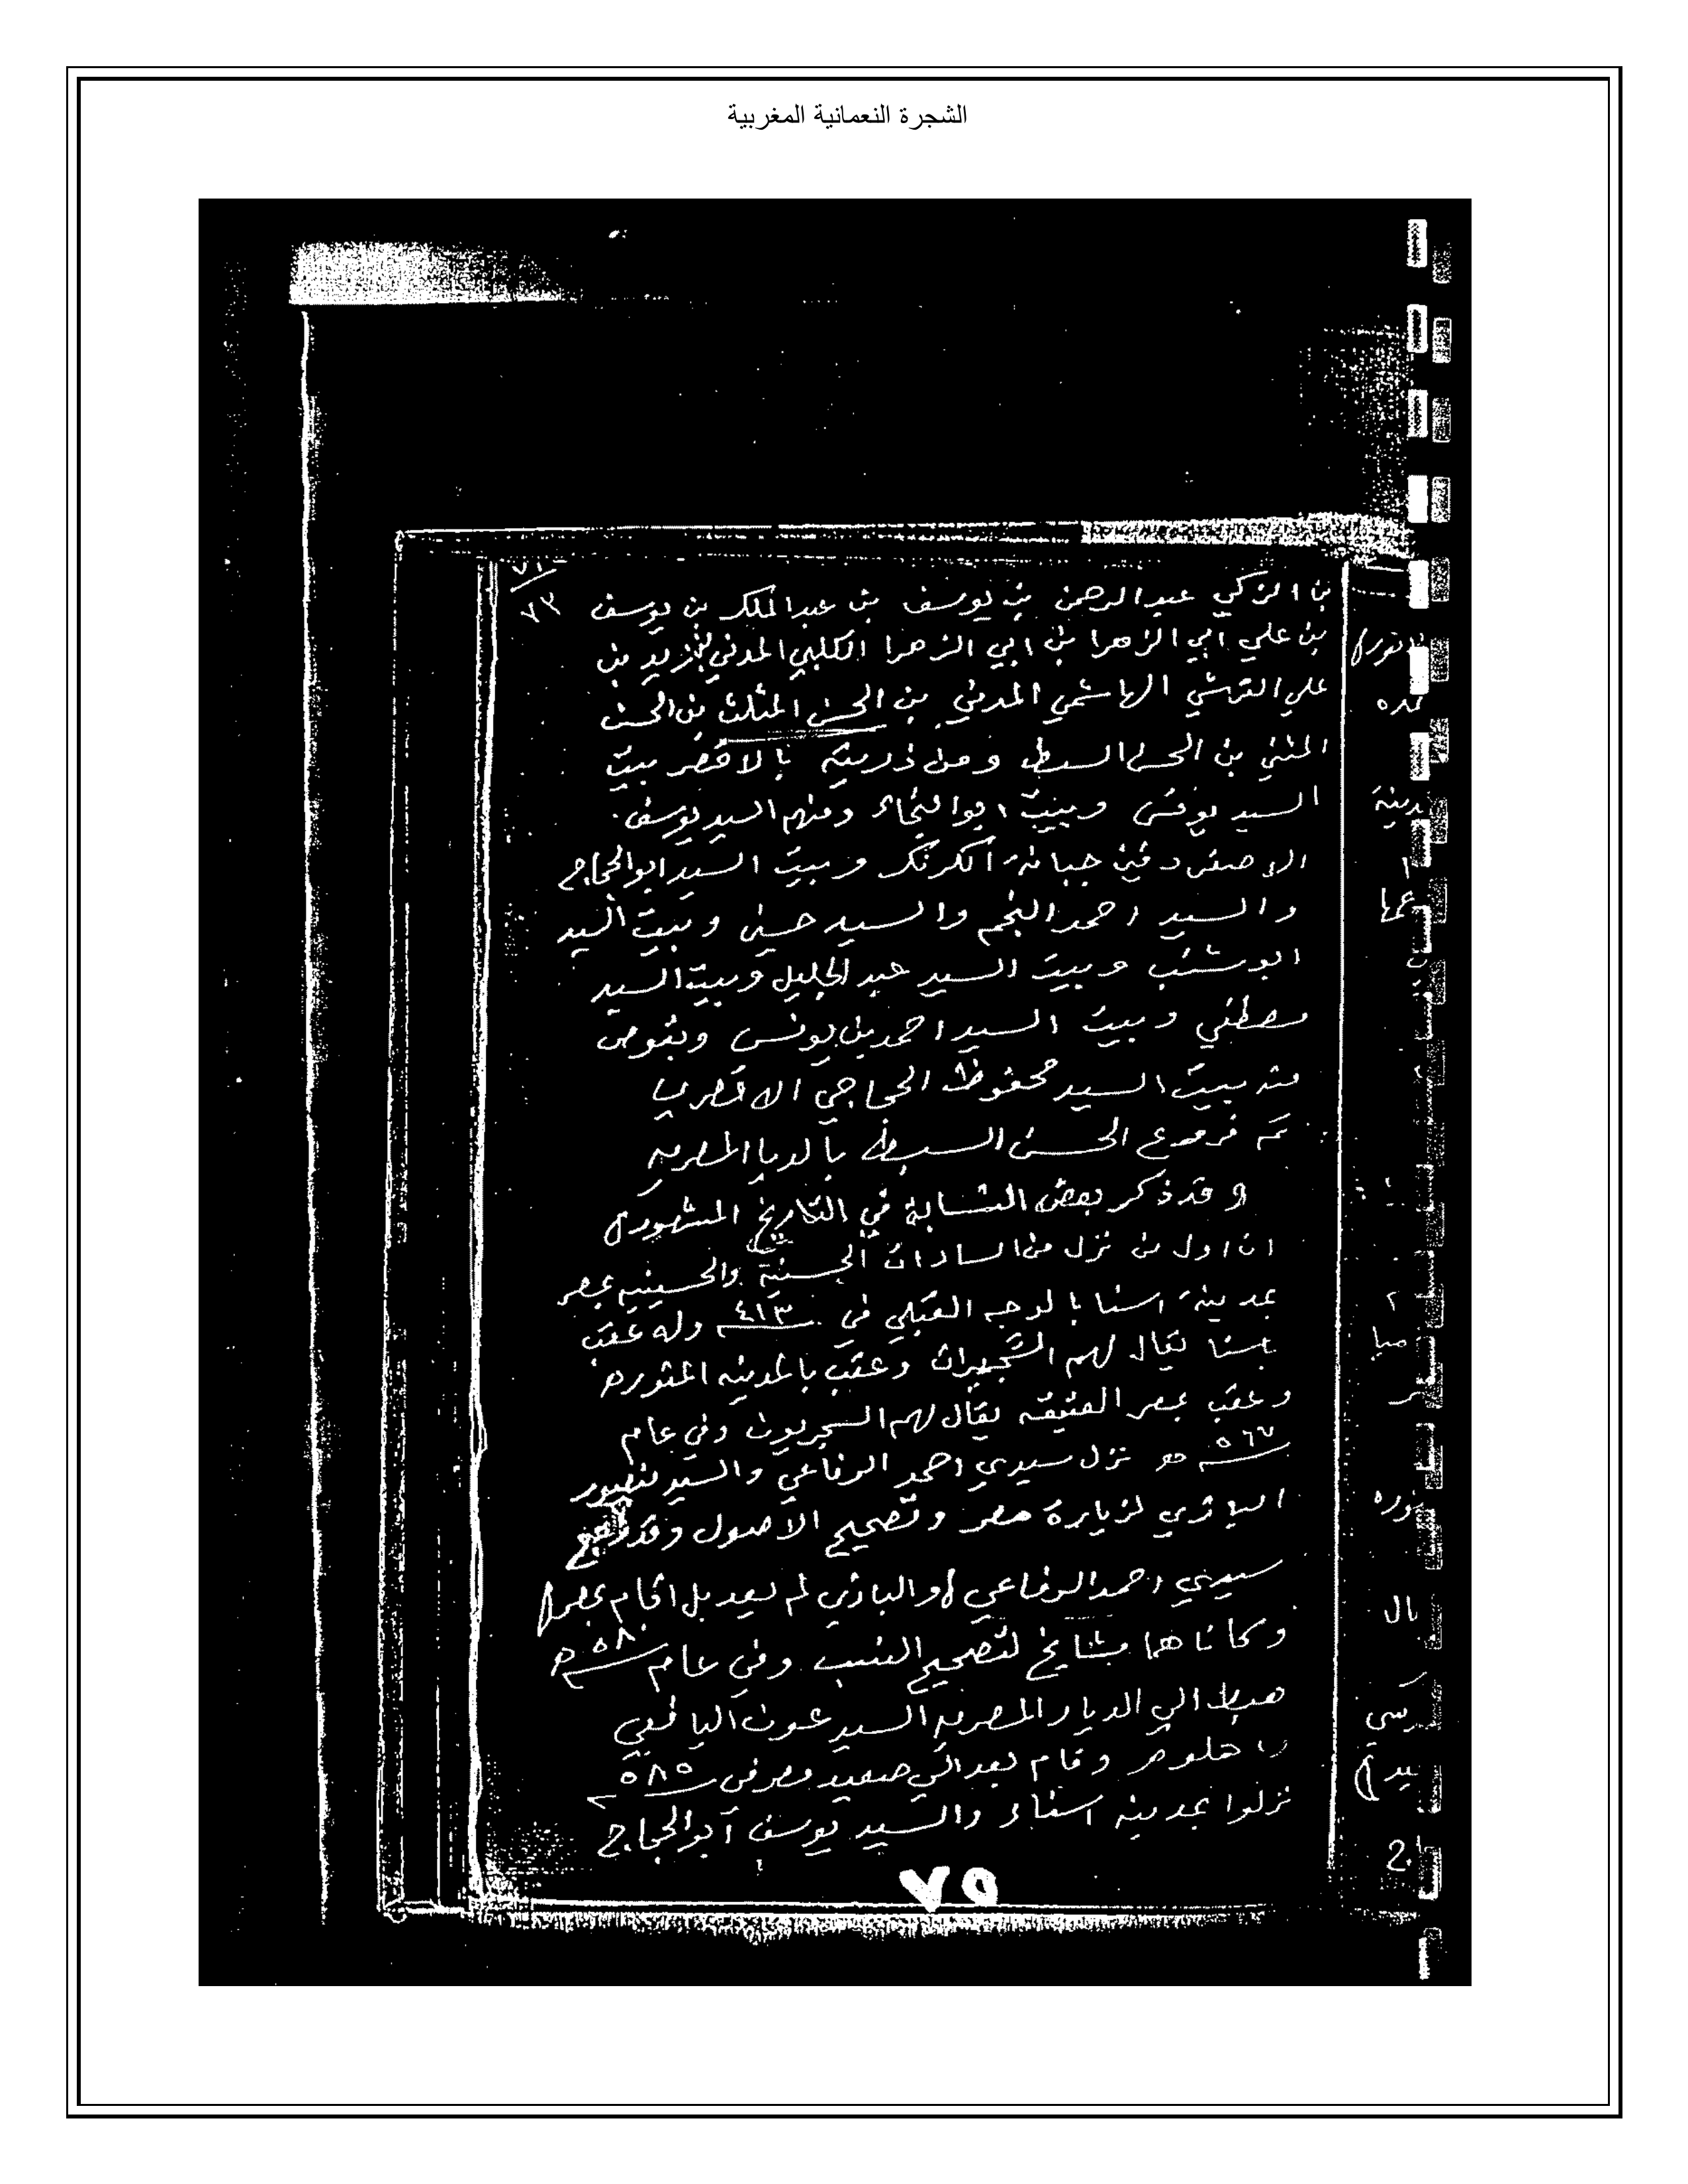 الشجرة النعمانية المغربية
٧٣
بن الزكي عبد الرحمن بن يوسف بن عبد الملك بن يوسف
بن علي ابي الزهرا بن ابي الزهرا الكلبي المدني بن زيد بن
علي القرشي الهاشمي المدني بن الحسن المثلث بن الحسن
المثني بن الحسن السبط ومن ذريته بالاقصر بيت
السيد يونس وبيت ابو النجاء ومنهم السيد يوسف
دفين جبانة الكرنك وبيت السيد ابو الحجاج
والسيد احمد النجم والسيد حسين وبيت السيد
وبيت السيد عبد الجليل وبيت السيد
مصطفي وبيت السيد احمد بن يونس وبقوص
منه بيت السيد محفوظ الحجاجي الاقصري
تمه فروع الحسن السبط بالديا المصريه
وقد ذكر بعض النسابة في التاريخ المشهورة
ان اول من نزل من السادات الحسنية والحسينيه بمصر
بمدينة اسنا بالوجه القبلي في ٤١٣ وله عقب
بسنا يقال لهم وعقب بالمدينه المنوره
وعقب بمصر العتيقه يقال لهم وفي عام
٥٦٧ هـ نزل سيدي احمد الرفاعي والسيد
لزيارة مصر وتصحيح الاصول وقد رجع
سيدي احمد الرفاعي والبازي لم يعد بل اقام بمصر
وكانا هما مشايخ لتصحيح النسب وفي عام ٥٨٠ هـ
هبط الي الديار المصريه السيد
وقام بعد الي صعيد مصر في ٥٨٥
نزلوا بمدينه اسناء والسيد يوسف ابو الحجاج
٧٥